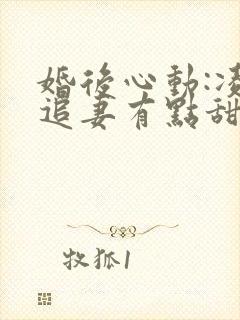 婚後心動:凌
追妻有點甜
牧狐1